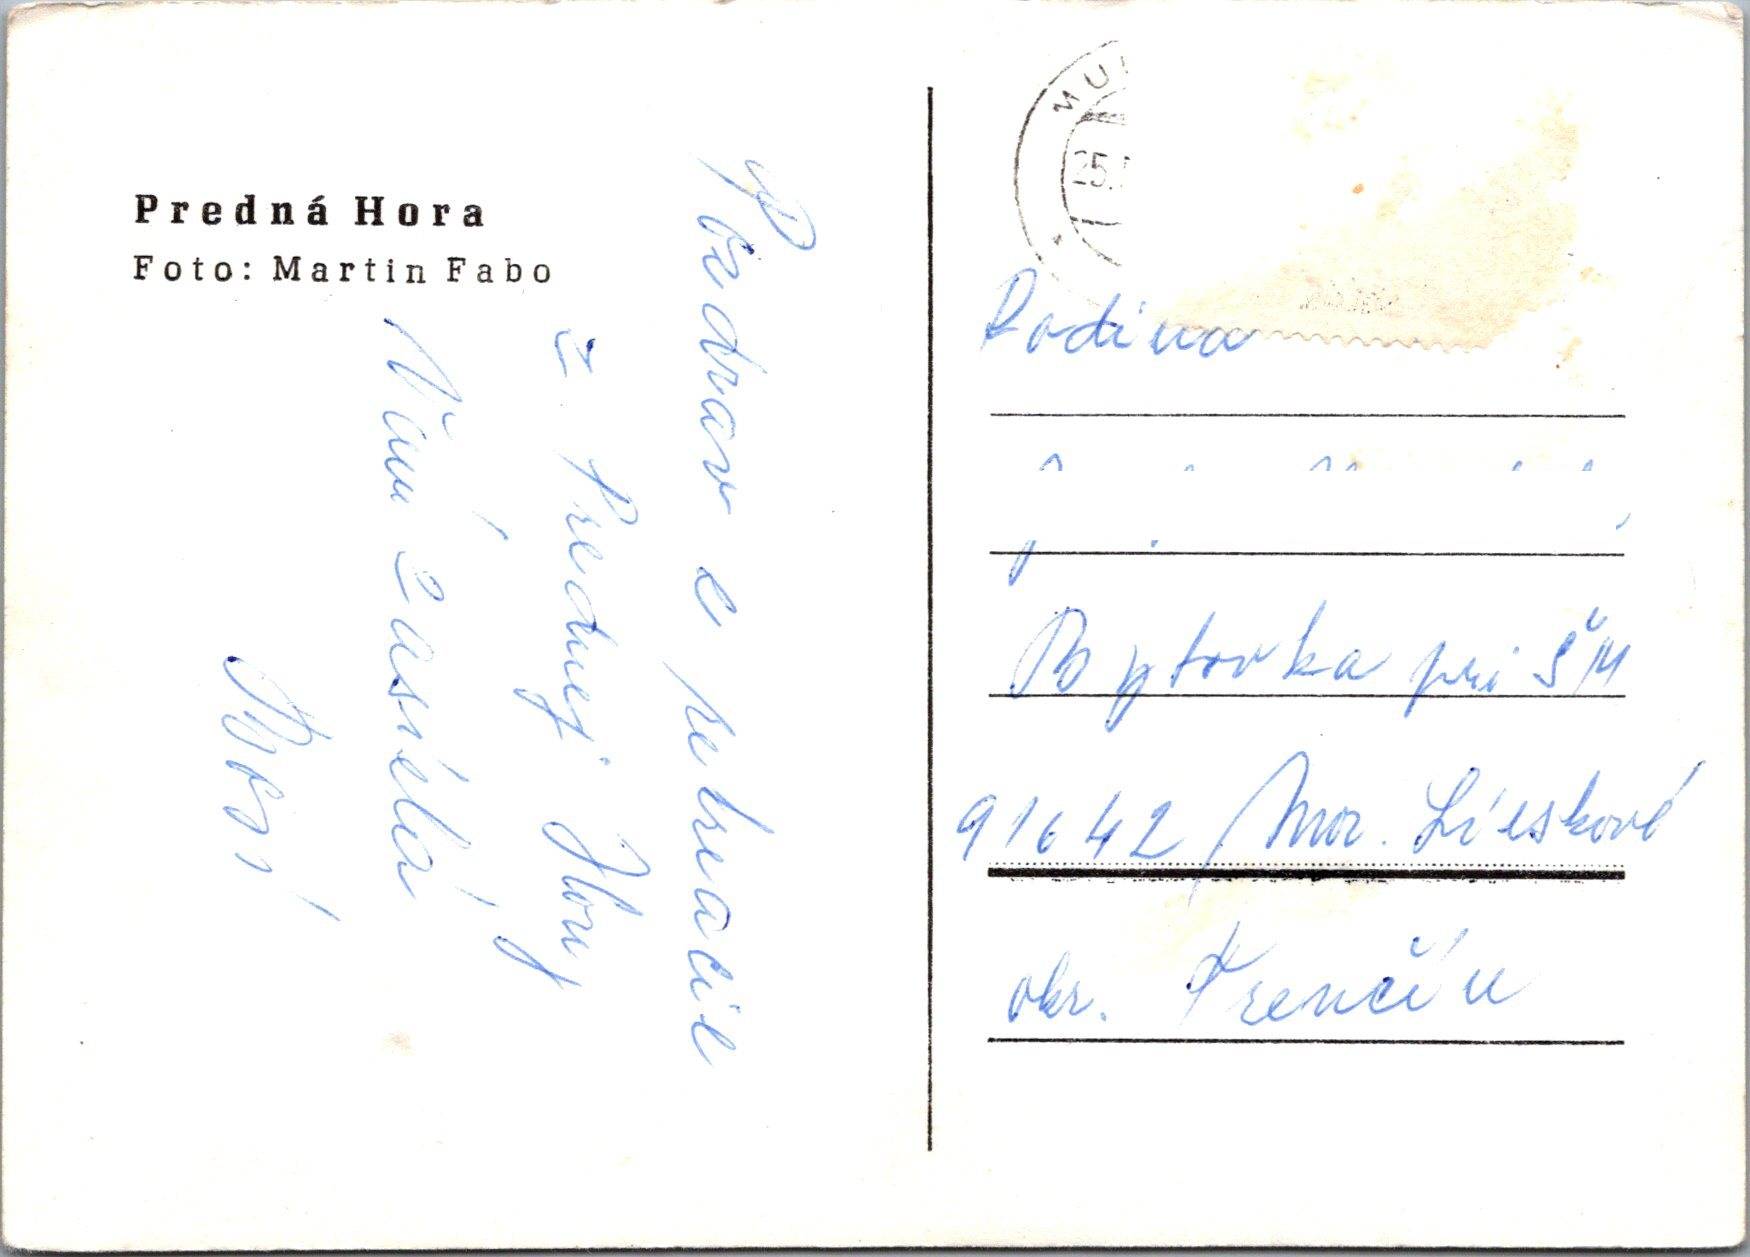 Predná Hora
Foto: Martin Fabo
Pozdrav z rekreácie
z Prednej Hory
Vám zasiela
MU
25.
Rodina
Bytovka pri ŠM
91642 Mor. Lieskové
okr. Trenčín